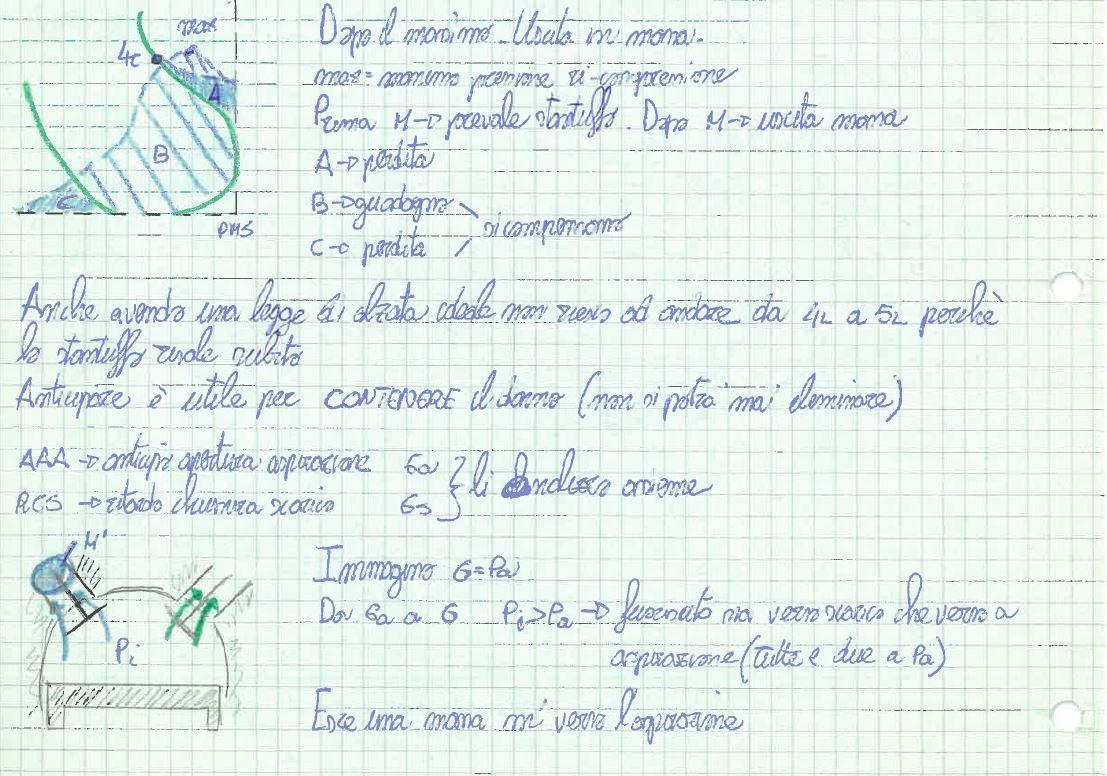 max
4c
A
B
C
PMS
Dopo il massimo. Uscita in massa.
max = massimo pressione ri-compressione
Prima M → prevale stantuffo. Dopo M → uscita massa
A → perdita
B → guadagno
si compensano
C → perdita
Anche avendo una legge di alzata ideale non riesco ad andare da 4L a 5L perchè
lo stantuffo risale subito
Anticipare è utile per CONTENERE il danno (non si potrà mai eliminare)
AAA → anticipo apertura aspirazione 6a
li analizzo assieme
RCS → ritardo chiusura scarico 6s
M'
Pi
Immagino 6=Pa
Da 6a a 6 Pi>Pa → fuoriuscita sia verso scarico che verso
aspirazione (tutte e due a Pa)
Esce una massa m' verso l'aspirazione